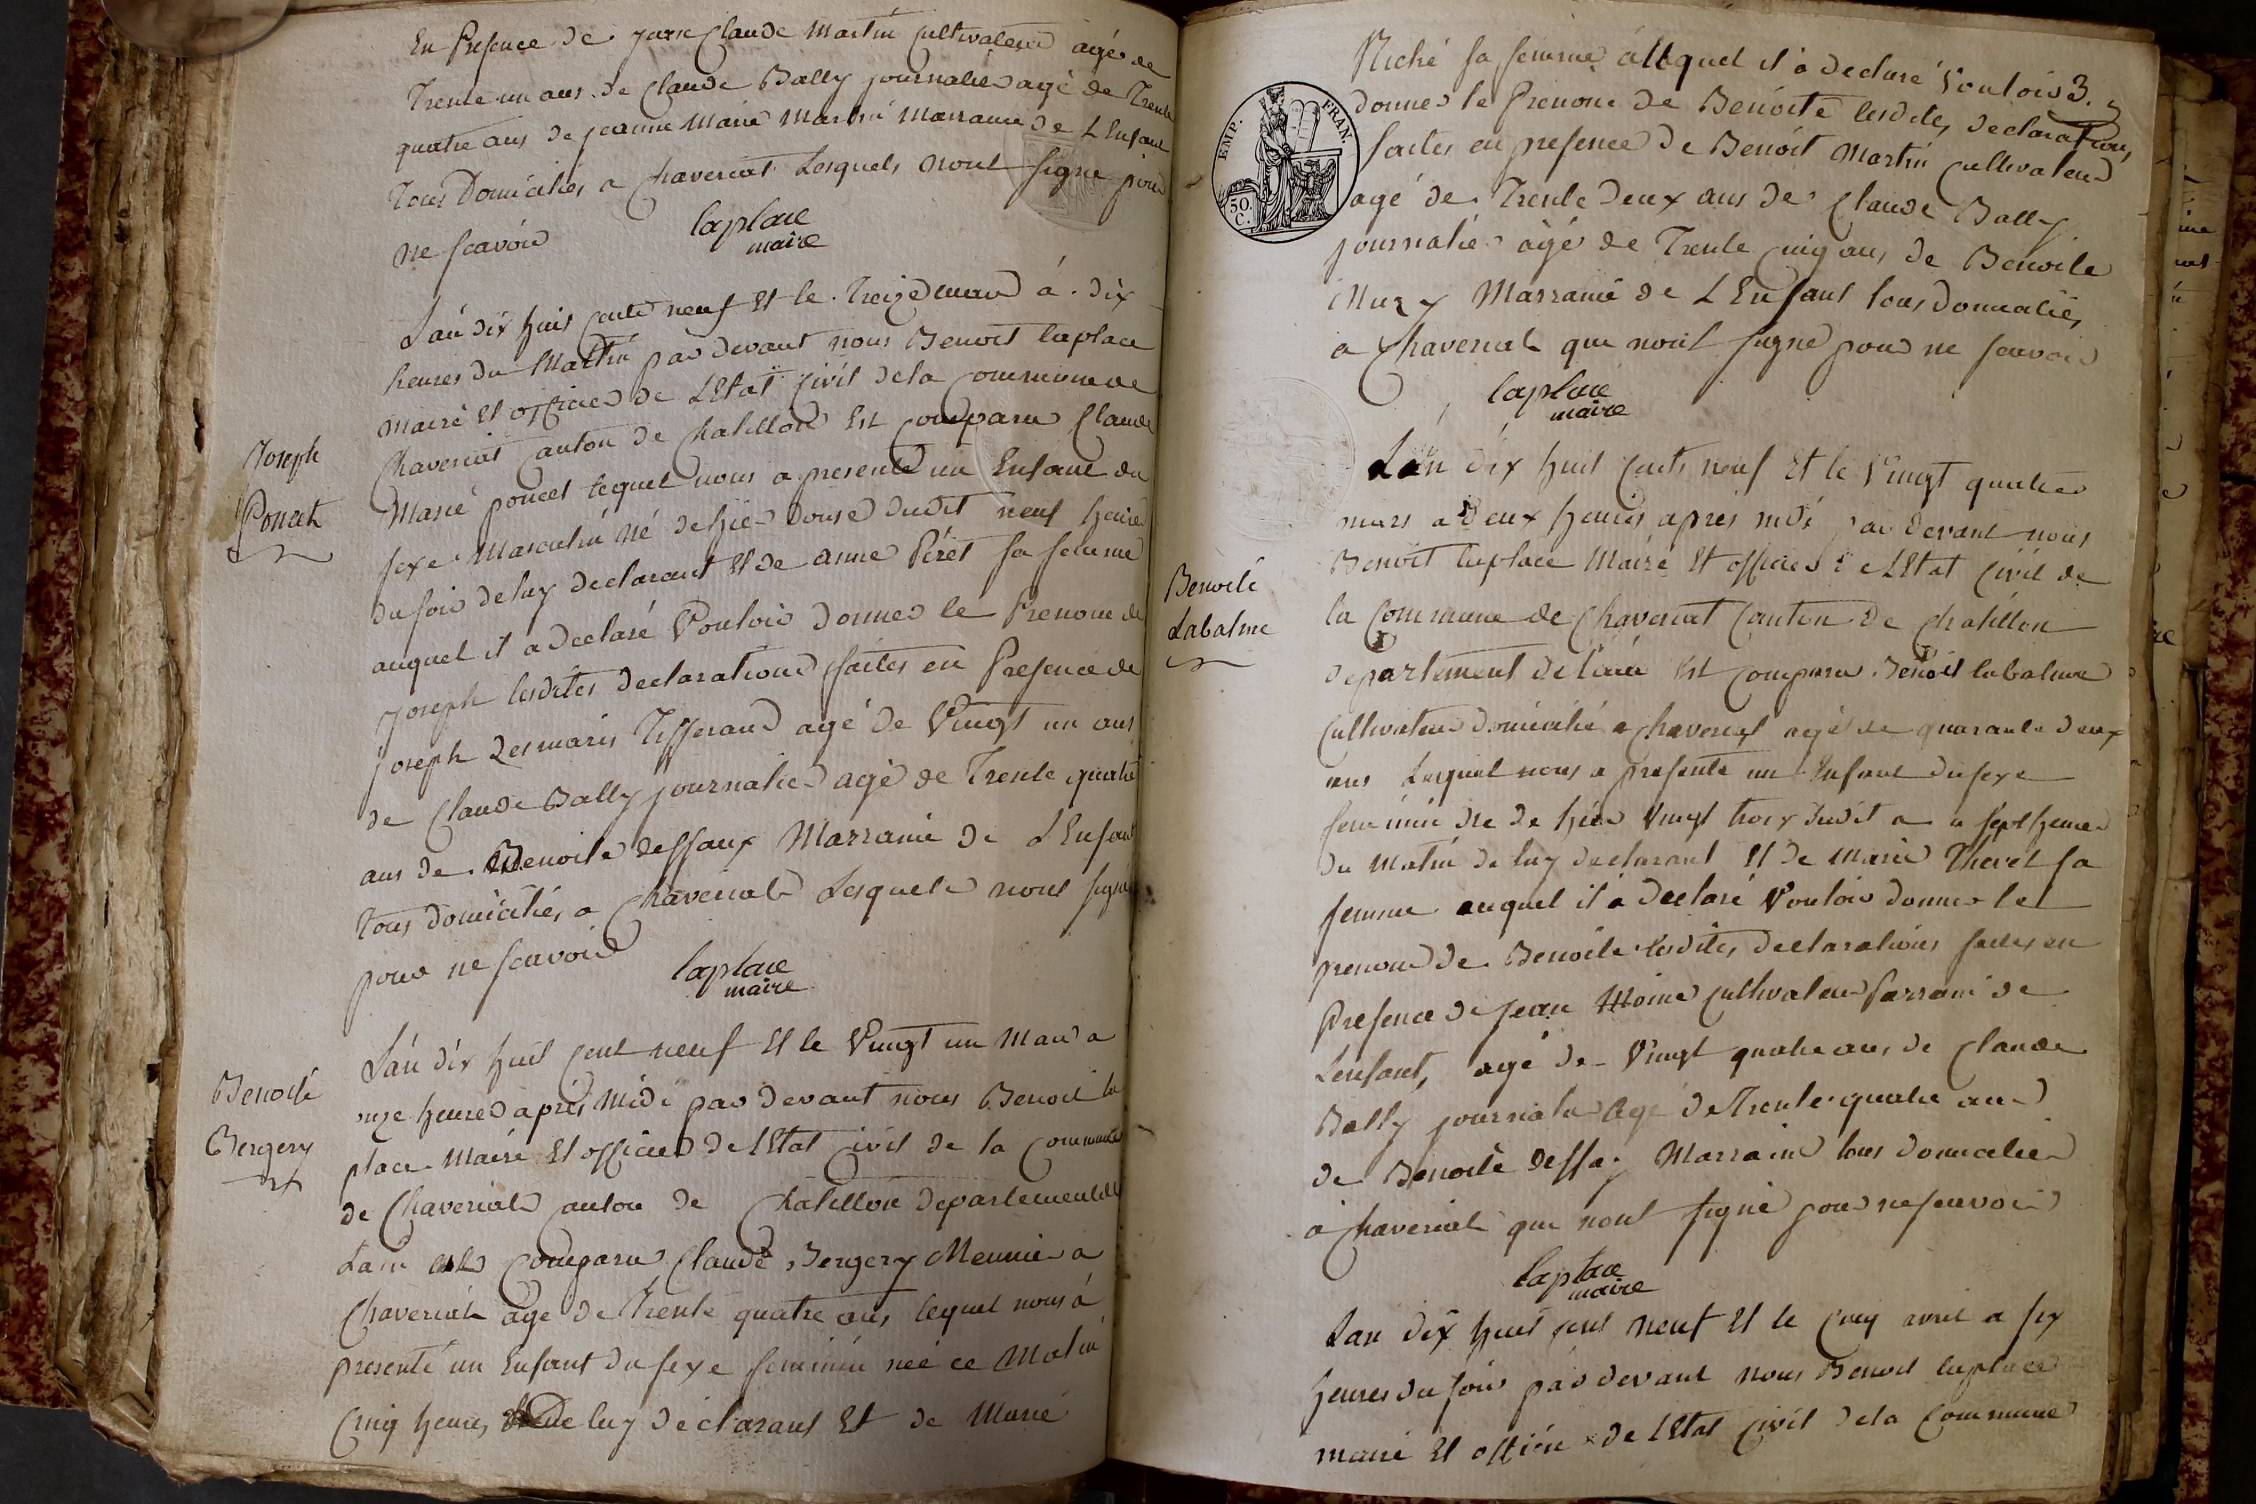 En Presence de jean Claude Martin Cultivateur agé de
Trente un ans de Claude Bally journalier agé de Trente
quatre ans de jeanne Marie Martin Marraine de L'Enfant
Tous Domiciliés a Chaveriat Lesquels nont signe pour
ne scavoir
laplace
maire
L'an dix huit cents neuf Et le Treize mars á dix
heures du Matin par devant nous Benoit laplace
Maire Et officier de L'Etat Civil dela commune de
Chaveriat canton de Chatillon Est comparu Claude
Joseph
Poncet
Marie poncet lequel nous a presenté un Enfant du
sexe Masculin né dehier douse dudit neuf heures
du soir deluy declarant Et de anne Péret sa femme
auquel il a declaré Vouloir donner le Prenom de
joseph lesdites declarations faites en Presence de
joseph Desmaris Tisserand agé de Vingt un ans
de Claude Bally journalier agé de Trente quatre
ans de Benoite dessaux Marraine de L'Enfant
tous domiciliés a Chaveriat Lesquels nont signé
pour ne scavoir
laplace
maire
Benoite
Bergery
L'an dix huit cent neuf Et le Vingt un Mars a
onze heures aprés Midi par devant nous Benoit la
place Maire Et officier de L'Etat civil de la commune
de Chaveriat canton de Chatillon departement de
Lain est comparu Claude Bergery Meunier a
Chaveriat age de Trente quatre ans lequel nous á
presenté un Enfant du sexe feminin née ce Matin
Cinq heures de luy déclarant Et de Marie
3.
Niché sa femme auquel il á declaré Vouloir
EMP. FRAN.
50.
C.
donner le Prenom de Benoite lesdites declarations
faites en presence de Benoit Martin Cultivateur
agé de Trente deux ans de Claude Bally
journalier agé de Trente cinq ans de Benoite
Marraine de L'Enfant tous domiciliés
a Chaveriat qui nont signé pour ne scavoir
laplace
maire
Benoite
Labalme
L'an dix huit cents neuf Et le Vingt quatre
mars a deux heures apres midi par devant nous
Benoit laplace Maire Et officier de L'Etat Civil de
la Commune de Chaveriat Canton de Chatillon
departement de l'ain Est comparu Benoit labalme
Cultivateur domicilié a Chaveriat agé de quarante deux
ans Lequel nous a presenté un Enfant du sexe
feminin née de hier Vingt trois dudit a sept heures
du Matin de luy declarant Et de Marie Thevet sa
femme auquel il á declaré Vouloir donner le
prenom de Benoite lesdites declarations faites en
Presence de jean Moine Cultivateur Parrain de
Lenfant, agé de Vingt quatre ans de Claude
Bally journalier agé de Trente quatre ans
de Benoite Marraine tous domiciliés
a Chaveriat qui nont signé pour ne scavoir
laplace
maire
Lan dix huit cent neuf Et le Cinq avril a six
heures du soir par devant nous Benoit laplace
maire Et officier de L'Etat Civil dela Commune